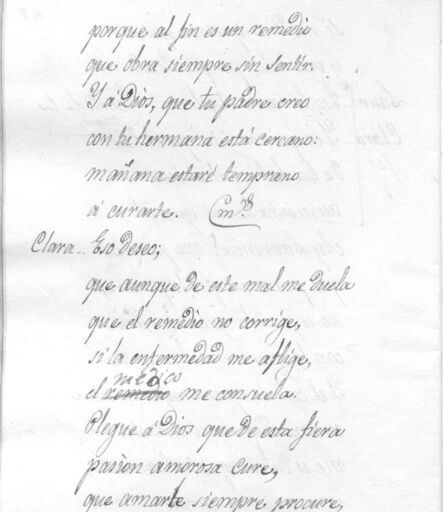 porque al fin es un remedio
que obra siempre sin sentir.
Y á Dios, que tu padre creo
con tu hermana está cercano:
mañana estaré temprano
á curarte.
Clara... Eso deseo;
que aunque de este mal me duela
que el remedio no corrige,
si la enfermedad me aflige,
medico
el remedio me consuela.
Plegue á Dios que de esta fiera
pasion amorosa cure,
que amarte siempre procure,